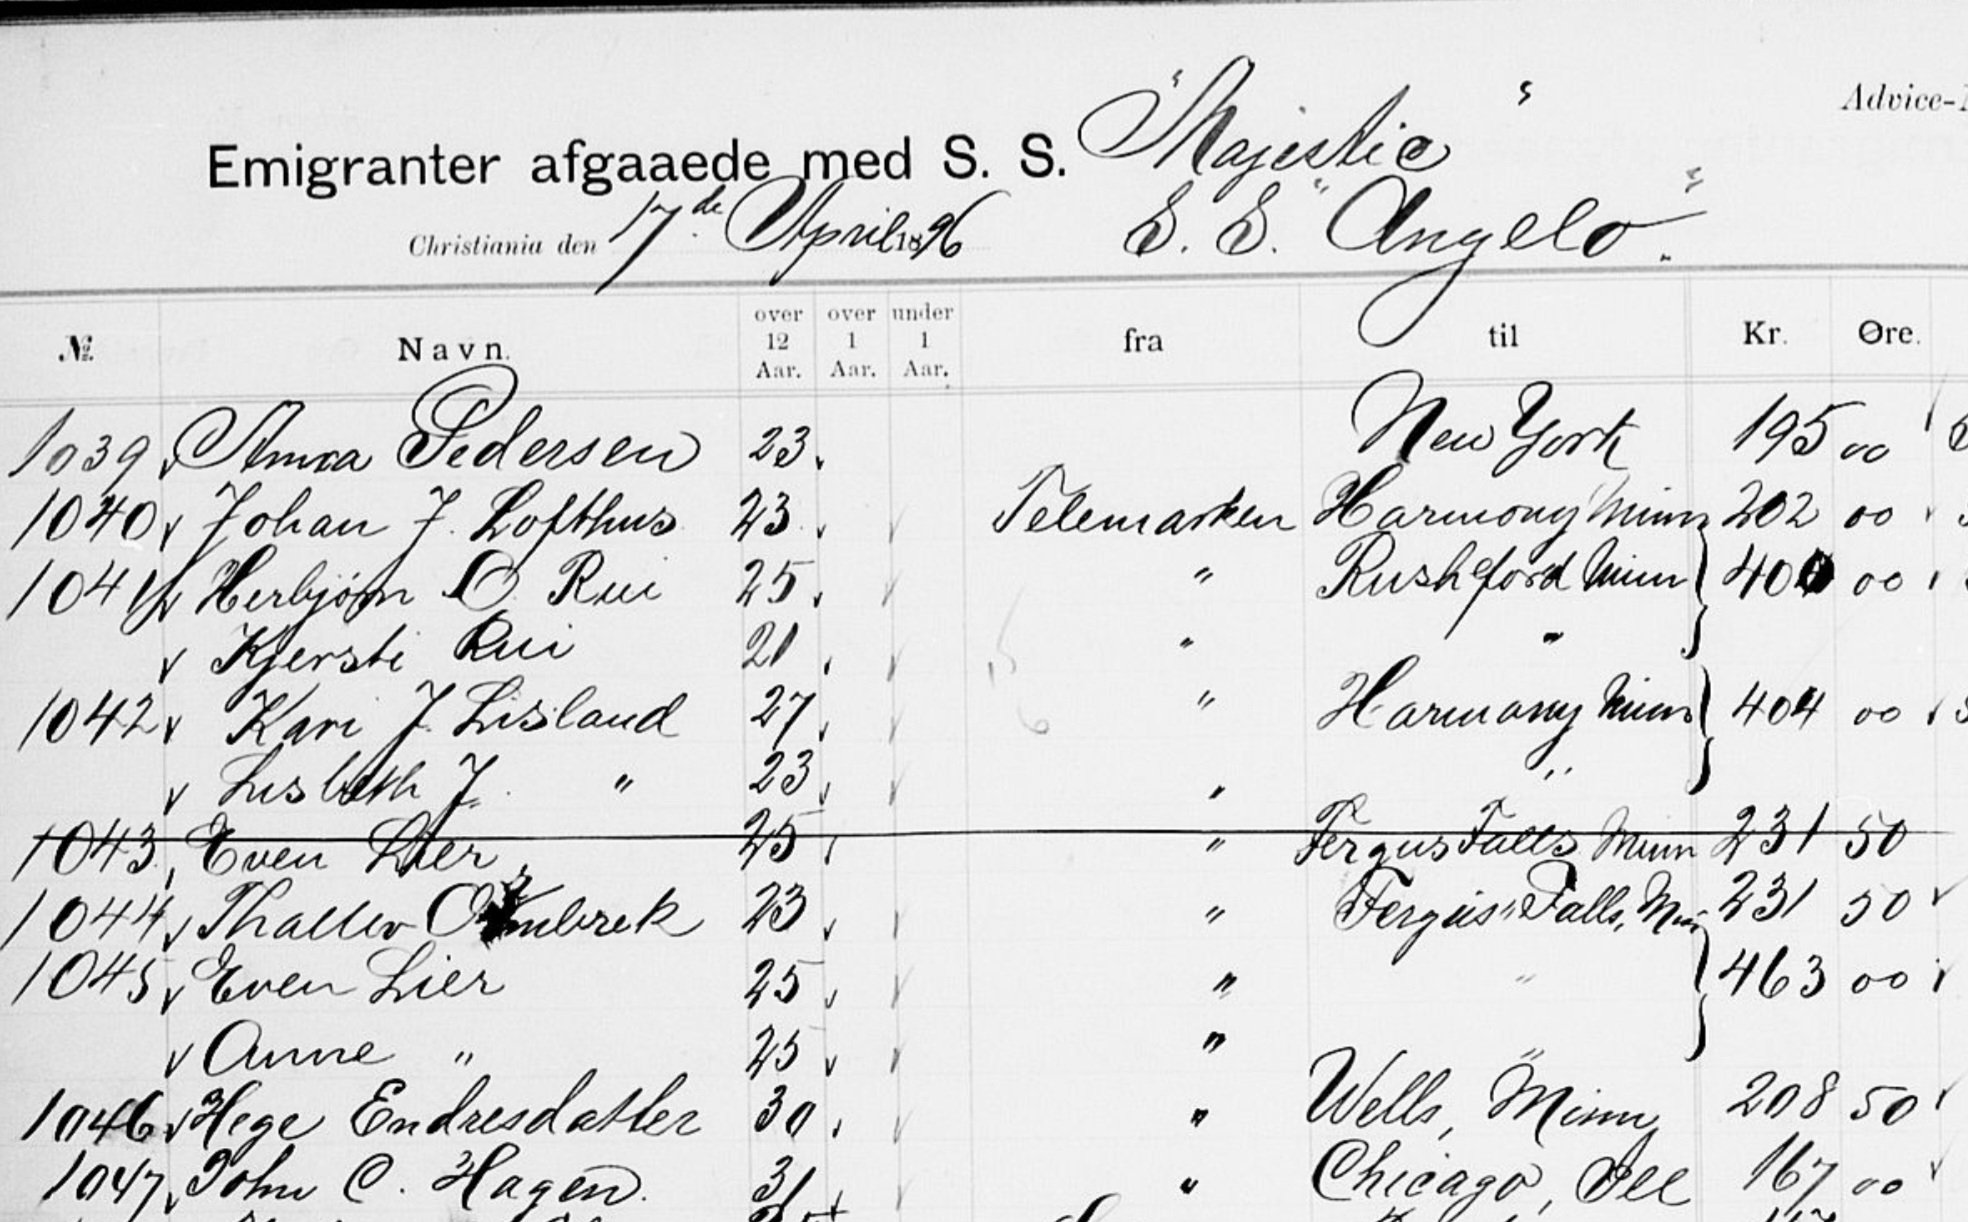 Advice-
Emigranter afgaaede med S. S. "Majestic"
Christiania den 17de April 1896 S. S. "Angelo".
№ Navn. over 12 Aar. over 1 Aar. under 1 Aar. fra til Kr. Øre.
1039 Anna Pedersen 23 New York 195 00
1040 Johan J. Lofthus 23 Telemarken Harmony Minn 202 00
1041 Herbjørn O. Rui 25 " Rushford Minn 404 00
Kjersti Rui 21 " "
1042 Kari J. Lisland 27 " Harmony Minn 404 00
Lisbeth J. " 23 " "
1043 Even Lier 25 " Fergus Falls Minn 231 50
1044 23 " Fergus Falls, Min 231 50
1045 Even Lier 25 " " 463 00
Anne " 25 " "
1046 Hege Endresdatter 30 " Wells, Minn 208 50
1047 John C. Hagen. 31 " Chicago, Ill 167 00